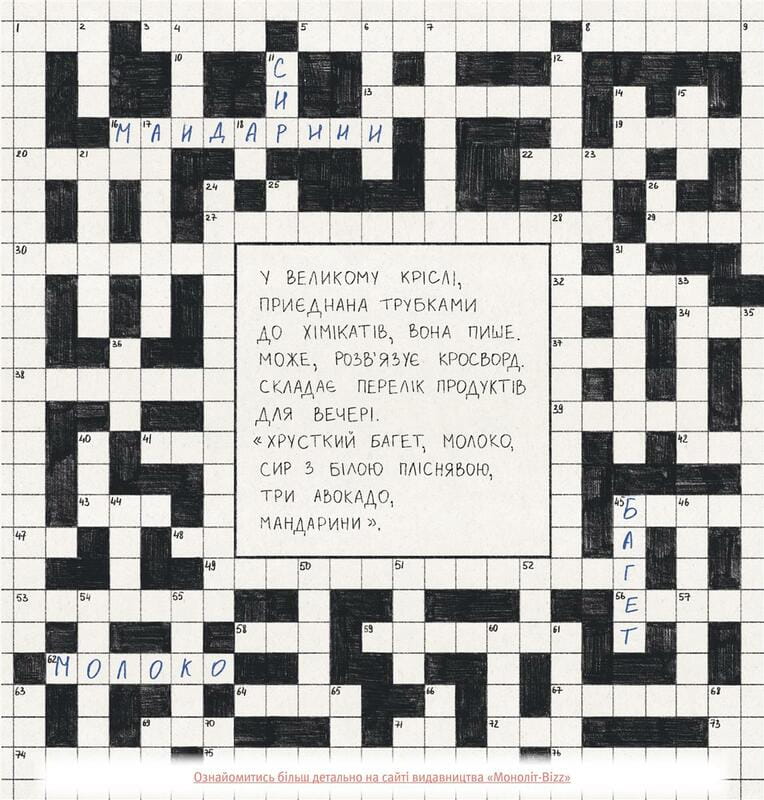 1 2 3 4 5 6 7 8 9
10 11 12
С
И 13 14 15
16 17 18 19
МАНДАРИНИ
20 21 22 23
24 25 26
27 28 29
30 31
У ВЕЛИКОМУ КРІСЛІ,
ПРИЄДНАНА ТРУБКАМИ
ДО ХІМІКАТІВ, ВОНА ПИШЕ.
МОЖЕ, РОЗВ'ЯЗУЄ КРОСВОРД.
СКЛАДАЄ ПЕРЕЛІК ПРОДУКТІВ
ДЛЯ ВЕЧЕРІ.
«ХРУСТКИЙ БАГЕТ, МОЛОКО,
СИР З БІЛОЮ ПЛІСНЯВОЮ,
ТРИ АВОКАДО,
МАНДАРИНИ».
32 33
34 35
36 37
38
39
40 41 42
43 44 45 46
БАГЕТ
47 48
49 50 51 52
53 54 55 56 57
58 59 60 61
62
МОЛОКО
63 64 65 66 67 68
69 70 71 72 73
74 75 76
Ознайомитись більш детально на сайті видавництва «Моноліт-Bizz»